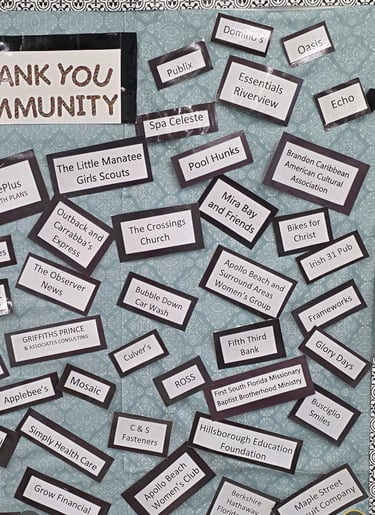 ANK YOU
MMUNITY
Domino's
Oasis
Publix
Essentials
Riverview
Echo
Spa Celeste
The Little Manatee
Girls Scouts
Pool Hunks
Brandon Caribbean
American Cultural
Association
Plus
TH PLANS
Outback and
Carrabba's
Express
The Crossings
Church
Mira Bay
and Friends
Bikes for
Christ
Irish 31 Pub
The Observer
News
Bubble Down
Car Wash
Apollo Beach and
Surround Areas
Women's Group
Frameworks
GRIFFITHS PRINCE
& ASSOCIATES CONSULTING
Culver's
Fifth Third
Bank
Glory Days
Applebee's
Mosaic
ROSS
First South Florida Missionary
Baptist Brotherhood Ministry
Busciglio
Smiles
Simply Health Care
C & S
Fasteners
Hillsborough Education
Foundation
Grow Financial
Apollo Beach
Women's Club
Berkshire
Hathaway
Florida
Maple Street
uit Company